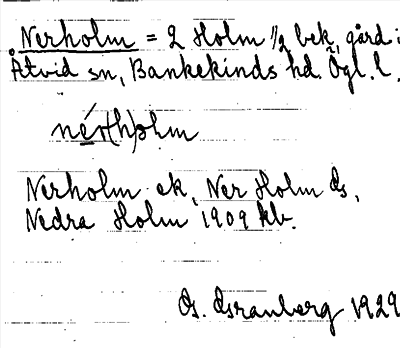 Nerholm = 2 Holm 1/2 bek, gård i
Åtvid sn, Bankekinds hd. Ögl. l.
né̱r(h)ɔlm
Nerholm ek, Ner Holm ds,
Nedra Holm 1909 kb.
1929